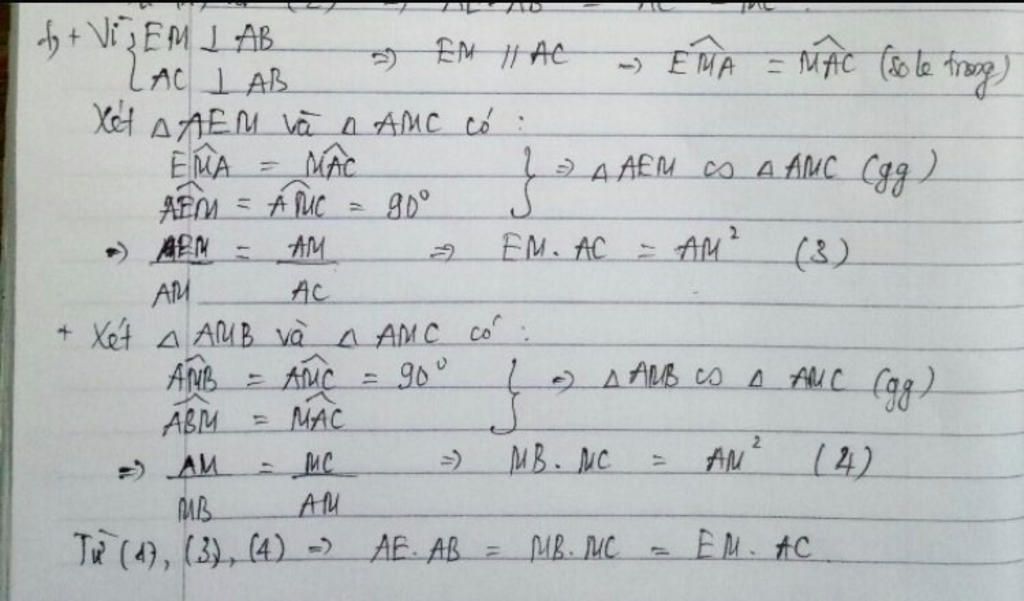 b, + Vì { EM ⊥ AB
AC ⊥ AB => EM // AC => \widehat{EMA} = \widehat{MAC} (so le trong)
Xét △ AEM và △ AMC có :
\widehat{EMA} = \widehat{MAC}
\widehat{AEM} = \widehat{AMC} = 90° } => △ AEM ∽ △ AMC (gg)
=> EM/AM = AM/AC => EM. AC = AM² (3)
+ Xét △ AMB và △ AMC có :
\widehat{AMB} = \widehat{AMC} = 90°
\widehat{ABM} = \widehat{MAC} } => △ AMB ∽ △ AMC (gg)
=> AM/MB = MC/AM => MB. MC = AM² (4)
Từ (1), (3), (4) => AE. AB = MB. MC = EM. AC